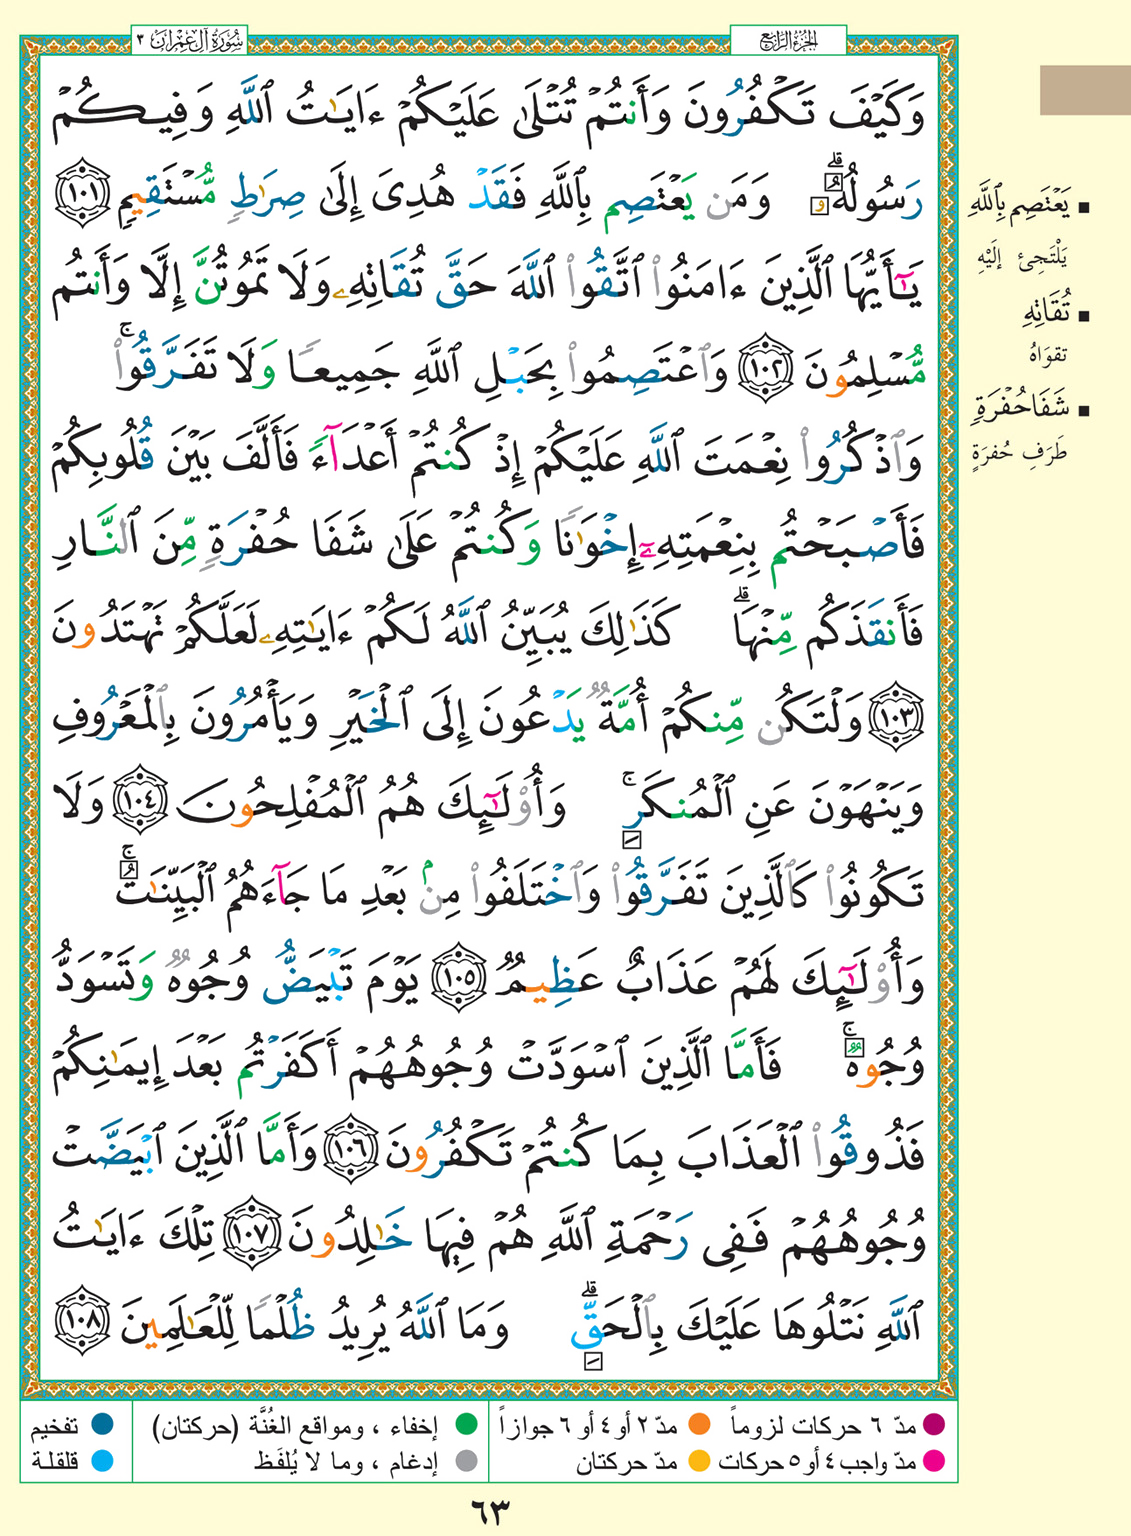 الجزء الرابع
سُورَةُ آلِ عِمْرَان ٣
وَكَيْفَ تَكْفُرُونَ وَأَنتُمْ تُتْلَىٰ عَلَيْكُمْ ءَايَـٰتُ ٱللَّهِ وَفِيكُمْ
رَسُولُهُۥۗ وَمَن يَعْتَصِم بِٱللَّهِ فَقَدْ هُدِىَ إِلَىٰ صِرَٰطٍ مُّسْتَقِيمٍ ١٠١
يَـٰٓأَيُّهَا ٱلَّذِينَ ءَامَنُوا۟ ٱتَّقُوا۟ ٱللَّهَ حَقَّ تُقَاتِهِۦ وَلَا تَمُوتُنَّ إِلَّا وَأَنتُم
مُّسْلِمُونَ ١٠٢ وَٱعْتَصِمُوا۟ بِحَبْلِ ٱللَّهِ جَمِيعًا وَلَا تَفَرَّقُوا۟ۚ
وَٱذْكُرُوا۟ نِعْمَتَ ٱللَّهِ عَلَيْكُمْ إِذْ كُنتُمْ أَعْدَآءً فَأَلَّفَ بَيْنَ قُلُوبِكُمْ
فَأَصْبَحْتُم بِنِعْمَتِهِۦٓ إِخْوَٰنًا وَكُنتُمْ عَلَىٰ شَفَا حُفْرَةٍ مِّنَ ٱلنَّارِ
فَأَنقَذَكُم مِّنْهَاۗ كَذَٰلِكَ يُبَيِّنُ ٱللَّهُ لَكُمْ ءَايَـٰتِهِۦ لَعَلَّكُمْ تَهْتَدُونَ
١٠٣ وَلْتَكُن مِّنكُمْ أُمَّةٌ يَدْعُونَ إِلَى ٱلْخَيْرِ وَيَأْمُرُونَ بِٱلْمَعْرُوفِ
وَيَنْهَوْنَ عَنِ ٱلْمُنكَرِۚ وَأُو۟لَـٰٓئِكَ هُمُ ٱلْمُفْلِحُونَ ١٠٤ وَلَا
تَكُونُوا۟ كَٱلَّذِينَ تَفَرَّقُوا۟ وَٱخْتَلَفُوا۟ مِنۢ بَعْدِ مَا جَآءَهُمُ ٱلْبَيِّنَـٰتُۚ
وَأُو۟لَـٰٓئِكَ لَهُمْ عَذَابٌ عَظِيمٌ ١٠٥ يَوْمَ تَبْيَضُّ وُجُوهٌ وَتَسْوَدُّ
وُجُوهٌۚ فَأَمَّا ٱلَّذِينَ ٱسْوَدَّتْ وُجُوهُهُمْ أَكَفَرْتُم بَعْدَ إِيمَـٰنِكُمْ
فَذُوقُوا۟ ٱلْعَذَابَ بِمَا كُنتُمْ تَكْفُرُونَ ١٠٦ وَأَمَّا ٱلَّذِينَ ٱبْيَضَّتْ
وُجُوهُهُمْ فَفِى رَحْمَةِ ٱللَّهِ هُمْ فِيهَا خَـٰلِدُونَ ١٠٧ تِلْكَ ءَايَـٰتُ
ٱللَّهِ نَتْلُوهَا عَلَيْكَ بِٱلْحَقِّۗ وَمَا ٱللَّهُ يُرِيدُ ظُلْمًا لِّلْعَـٰلَمِينَ ١٠٨
■ يَعْتَصِم بِٱللَّهِ
يَلْتَجِئ إِلَيْهِ
■ تُقَاتِهِ
تقوَاهُ
■ شَفَا حُفْرَةٍ
طَرَفِ حُفرَةٍ
مدّ ٦ حركات لزوماً مدّ ٢ أو ٤ أو ٦ جوازاً إخفاء ، ومواقع الغُنَّة (حركتان) تفخيم
مدّ واجب ٤ أو ٥ حركات مدّ حركتان إدغام ، وما لا يُلفَظ قلقلة
٦٣